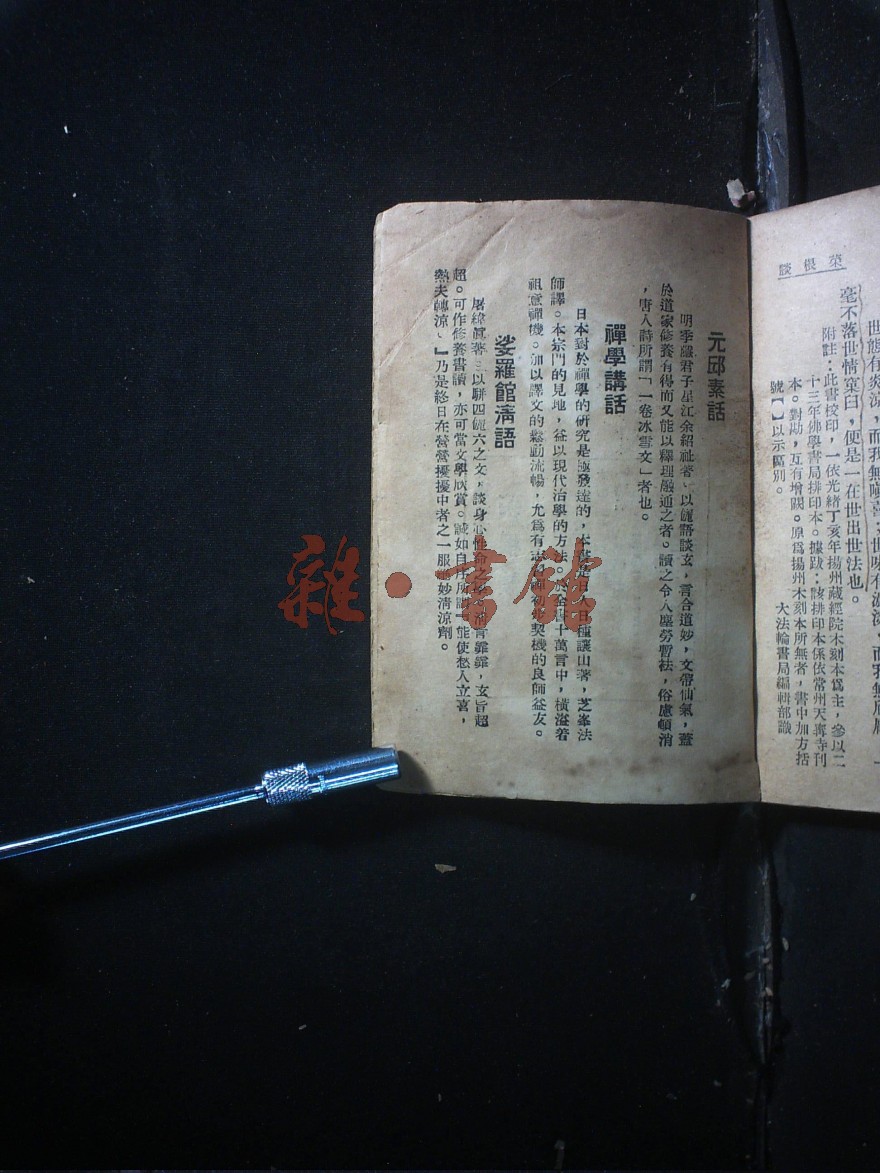 菜根談
世態有炎涼，而我無嗔喜；世味有濃淡，而我無欣厭
毫不落世情窠臼，便是一在世出世法也。
附註：此書校印，一依光緒丁亥年揚州藏經院木刻本爲主，參以二
十三年佛學書局排印本。據跋：該排印本係依常州天寧寺刊
本。對勘，互有增闕。原爲揚州木刻本所無者，書中加方括
號【】以示區別。
大法輪書局編輯部識
元邱素話
明季羅君子星江余紹祉著。以韻語談玄，言合道妙，文帶仙氣，蓋
於道家修養有得而又能以釋理融通之者。讀之令人塵勞暫祛，俗慮頓消
，唐人詩所謂「一卷冰雪文」者也。
禪學講話
日本對於禪學的研究是極發達的，本書是日人日種讓山著，芝峯法
師譯。本宗門的見地，益以現代治學的方法。於全書十萬言中，橫溢着
祖意禪機。加以譯文的鬆動流暢，尤爲有志 禪初步契機的良師益友。
娑羅館清語
屠緯眞著。以駢四儷六之文，談身心性命之 。 言霏霏，玄旨超
超。可作修養書讀，亦可當文學欣賞。誠如自序所謂「能使愁人立喜，
熱夫轉涼。」乃是終日在營營擾擾中者之一服 妙清涼劑。
雜·書館